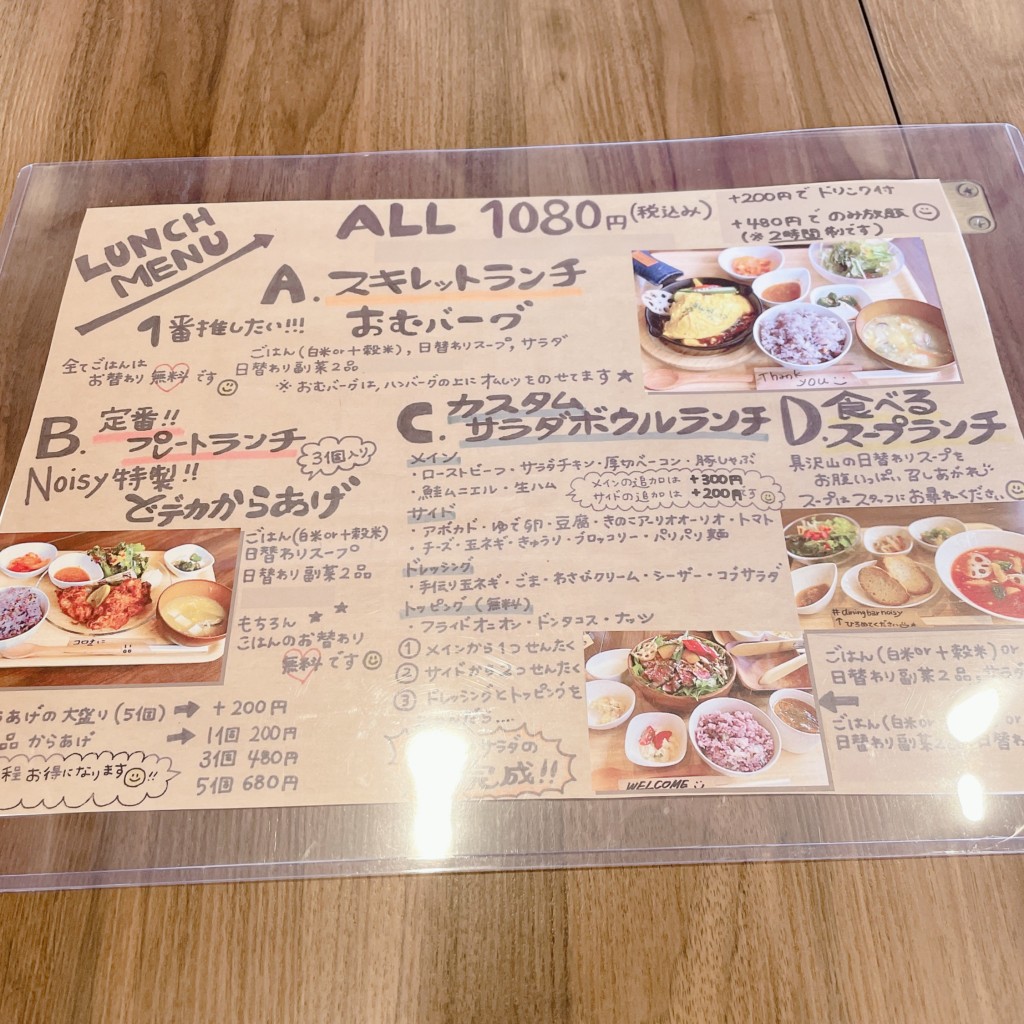 LUNCH MENU
ALL 1080円(税込み)
+200円で ドリンク付
+480円で のみ放題
(※2時間制です)
A.スキレットランチ
1番推したい!!!
おむバーグ
全てごはんは
お替わり 無料です
ごはん(白米or十穀米), 日替わりスープ, サラダ
日替わり副菜2品
※おむバーグは、ハンバーグの上にオムレツをのせてます★
Thank you
B.定番!!
プレートランチ
3個入り
Noisy特製!!
どデカからあげ
ごはん(白米or十穀米)
日替わりスープ
日替わり副菜2品
もちろん
ごはんのお替わり
無料です
あげの大盛り(5個)➡+200円
品 からあげ ➡1個 200円
3個 480円
5個 680円
程お得になります!!
C.カスタム
サラダボウルランチ
メイン
・ローストビーフ・サラダチキン・厚切ベーコン・豚しゃぶ
・鮭ムニエル・生ハム
メインの追加は +300円
サイドの追加は +200円です
サイド
・アボカド・ゆで卵・豆腐・きのこアーリオオーリオ・トマト
・チーズ・玉ネギ・きゅうり・ブロッコリー・パリパリ麺
ドレッシング
・手伝り玉ネギ・ごま・わさびクリーム・シーザー・コブサラダ
トッピング(無料)
・フライドオニオン・ドンタコス・ナッツ
① メインから1つせんたく
② サイドから2つせんたく
③ ドレッシングとトッピングを
サラダの
完成!!
WELCOME
D.食べる
スープランチ
具沢山の日替わりスープを
お腹いっぱい召しあがれ
スープはスタッフにお尋ねください
#diningbarnoisy
↑ひろめてください
ごはん(白米or十穀米)or
日替わり副菜2品,サラダ
ごはん(白米or
日替わり副菜2